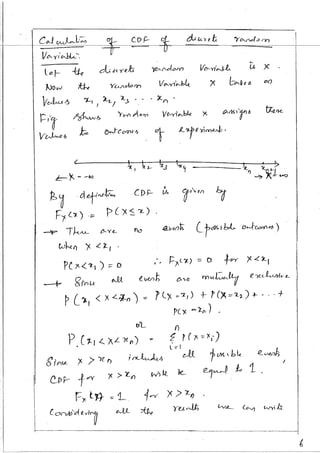 Calculation of CDF of discrete random
Variable:
Let the discrete random variable is X.
Now the random variable X takes on
Values x₁, x₂, x₃ . . . xn.
Fig. Shows random variable X assigns these
Values to outcomes of experiment.
x₁ x₂ x₃ x₄ xn xn+1
X → -∞ → X + ∞
By definition CDF is given by
Fx(x) = P(X ≤ x).
→ There are no events (possible outcomes)
when X < x₁.
P(X < x₁) = 0 ∴ Fx(x) = 0 for X < x₁
→ Since all events are mutually exclusive.
P(x₁ < X < xn) = P(X = x₁) + P(X = x₂) + . . . +
P(X = xn).
or
n
P(x₁ < X < xn) = Σ P(X = xi)
i=1
Since X > xn includes all possible events,
CDF for X > xn will be equal to 1.
Fx(x) = 1 for X > xn
Considering all the results we can write
6